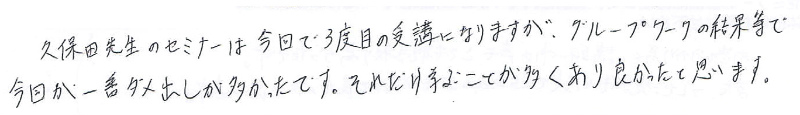 久保田先生のセミナーは今回で3度目の受講になりますが、グループワークの結果等で
今回が一番ダメ出しが多かったです。それだけ学ぶことが多くあり良かったと思います。